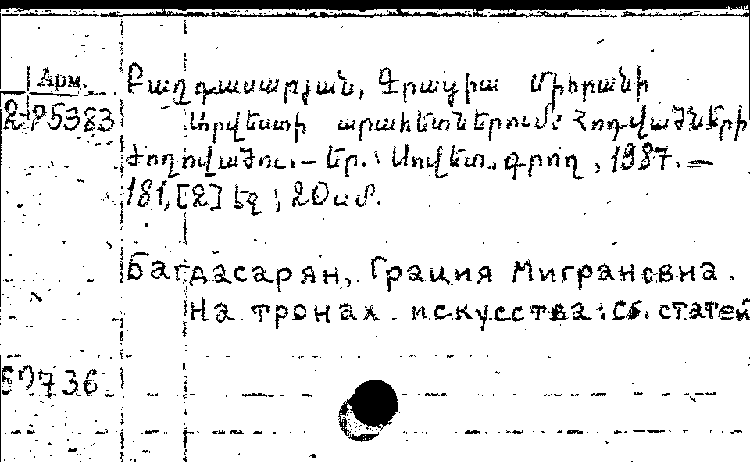 Арм.
Բաղդասարյան, Գրացիա Միհրանի
2-85383 Արվեստի արահետներում: Հոդվածների
ժողովածու. — Եր.: Սովետ. գրող, 1987. —
181, [2] էջ; 20 սմ.
Багдасарян, Грация Миграновна.
На тронах искусства: Сб. статей